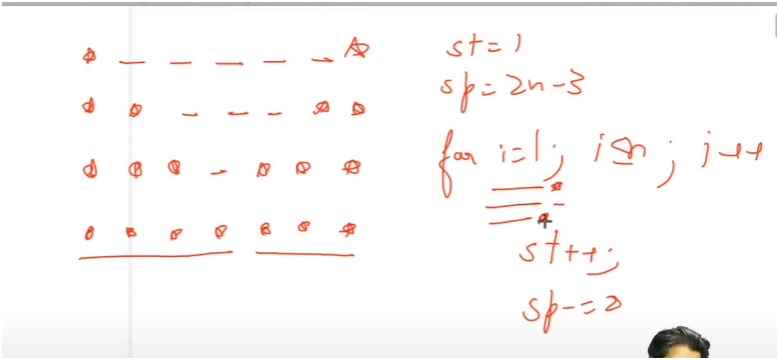 * _ _ _ _ _ *
* * _ _ _ * *
* * * _ * * *
* * * * * * *
st=1
sp=2n-3
for i=1; i≤n; i++
*
*
st++;
sp-=2